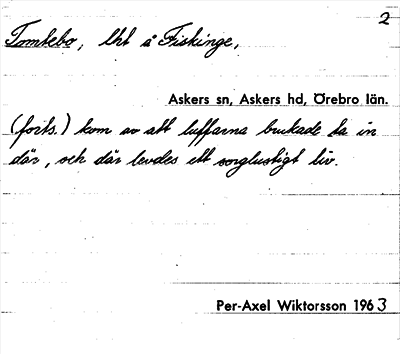 2
Tomtebo, lht å Fiskinge,
Askers sn, Askers hd, Örebro län.
(forts.) kom av att luffarna brukade ta in
där, och där levdes ett sorglustigt liv.
Per-Axel Wiktorsson 1963